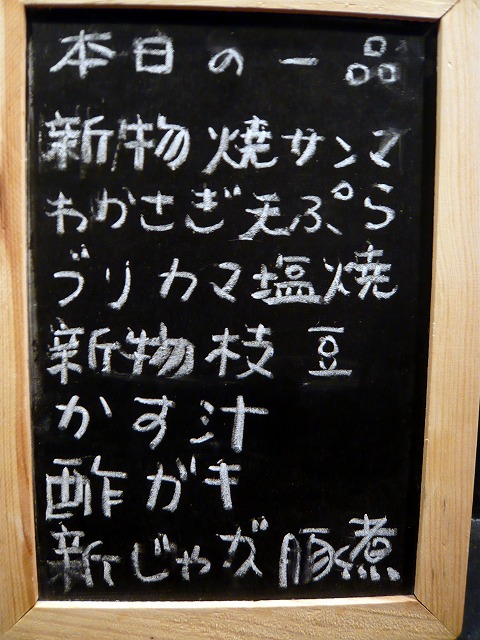 本日の一品
新物焼サンマ
わかさぎ天ぷら
ブリカマ塩焼
新物枝豆
かす汁
酢ガキ
新じゃが豚煮